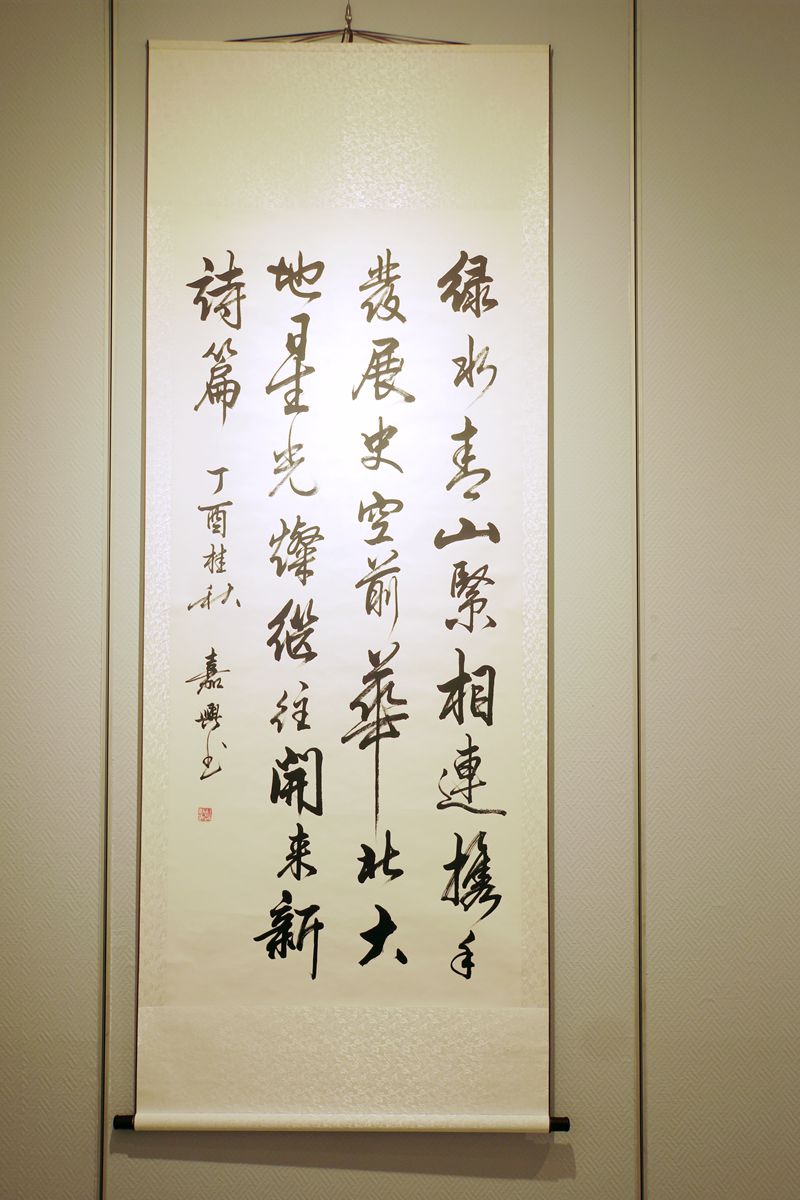 緑水青山緊相連攜手
發展史空前華北大
地星光燦繼往開来新
詩篇 丁酉桂秋 嘉興书